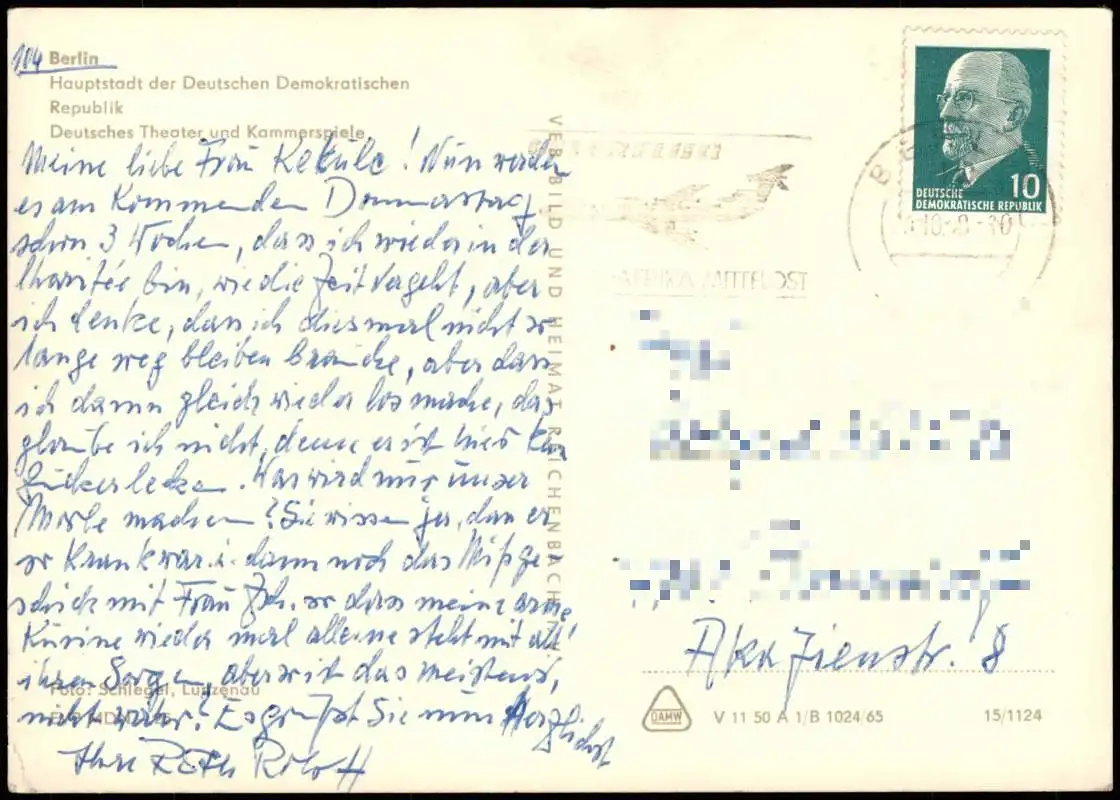 104 Berlin
Hauptstadt der Deutschen Demokratischen
Republik
Deutsches Theater und Kammerspiele
Meine liebe Frau Kekule! Nun werden
es am kommenden Donnerstag
schon 3 Wochen, dass ich wieder in der
Charitée bin, wie die Zeit vergeht, aber
ich denke, dass ich diesmal nicht so
lange weg bleiben brauche, aber dass
ich dann gleich wieder los mache, das
glaube ich nicht, denn es ist hier kein
Zuckerlecken. Was wird nur unser
machen? Sie wissen ja, dass er
so krank war u. dann noch das Mißge-
schick mit Frau so dass meine arme
Kusine wieder mal alleine steht mit all'
ihren Sorgen, aber so ist das meistens,
nicht wahr? Es grüßt Sie nun Herzlichst
Ihre Roloff
Foto: Schlegel, Lunzenau
VEB BILD UND HEIMAT REICHENBACH
DEUTSCHE
DEMOKRATISCHE REPUBLIK
10
AFRIKA MITTELOST
Akazienstr. 8
DAMW
V 11 50 A 1/B 1024/65
15/1124